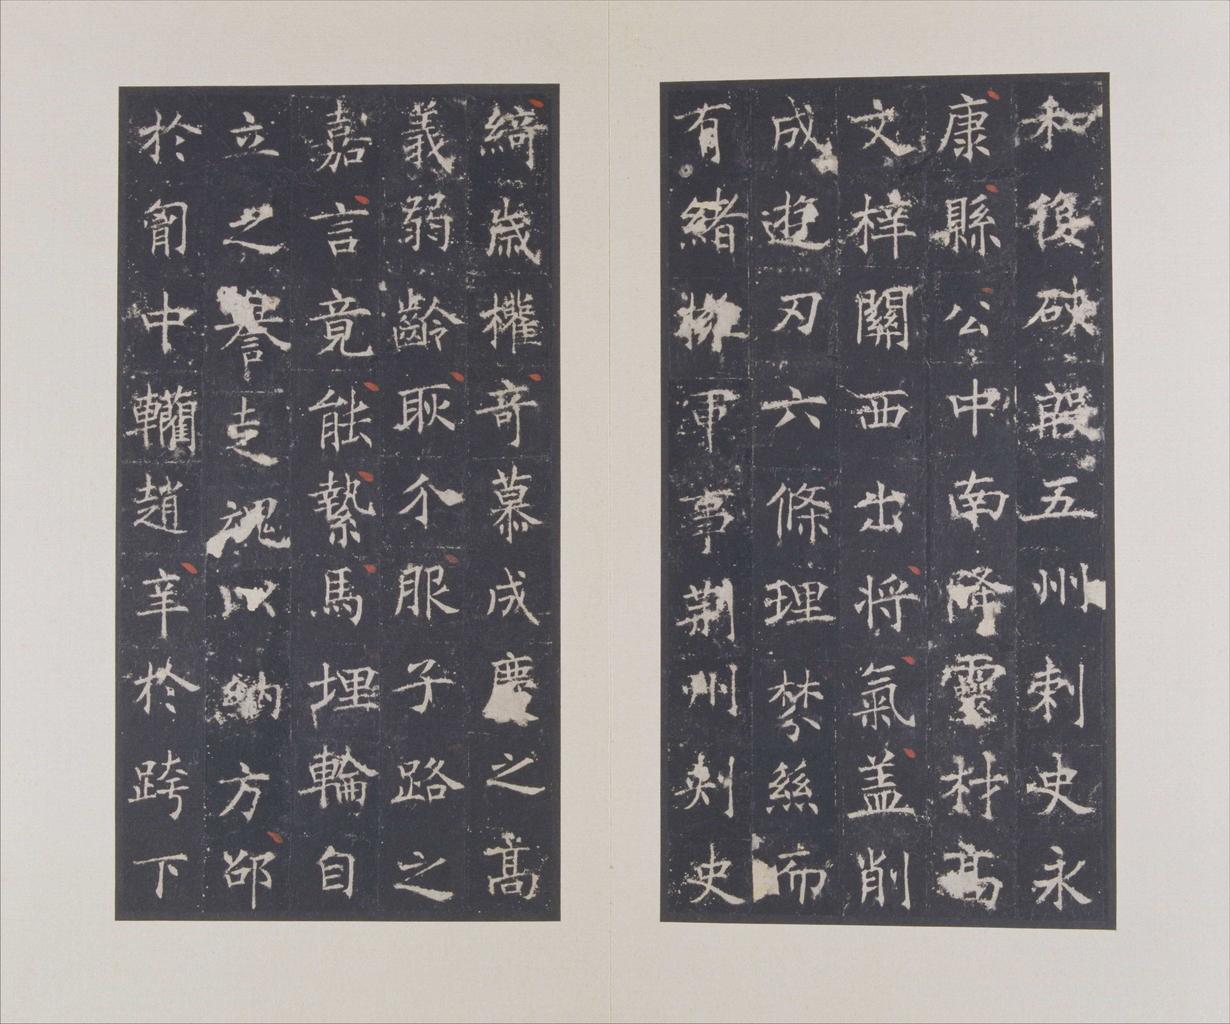 和復硤殷五州刺史永
康縣公中南降靈材高
文梓關西出将氣盖削
成遊刃六條理棼絲而
有緒軍事荊州刾史
綺歲權奇慕成慶之高
義弱齡耿介服子路之
嘉言竟能縶馬埋輪自
立之譽以納方邵
於匈中轥趙辛於跨下